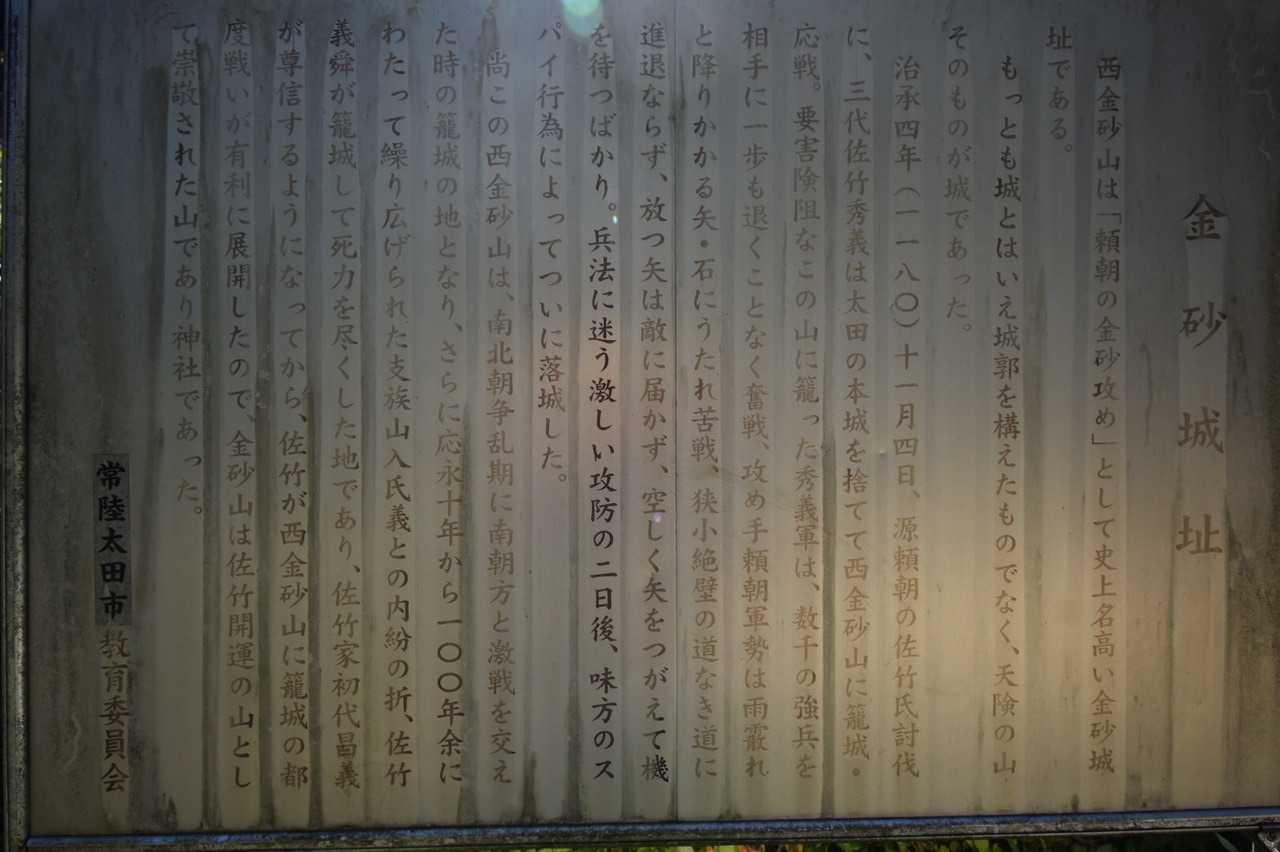 金砂城址
西金砂山は「頼朝の金砂攻め」として史上名高い金砂城
址である。
もっとも城とはいえ城郭を構えたものでなく、天険の山
そのものが城であった。
治承四年(一一八〇)十一月四日、源頼朝の佐竹氏討伐
に、三代佐竹秀義は太田の本城を捨てて西金砂山に籠城・
応戦。要害険阻なこの山に籠った秀義軍は、数千の強兵を
相手に一歩も退くことなく奮戦、攻め手頼朝軍勢は雨霰れ
と降りかかる矢・石にうたれ苦戦、狭小絶壁の道なき道に
進退ならず、放つ矢は敵に届かず、空しく矢をつがえて機
を待つばかり。兵法に迷う激しい攻防の二日後、味方のス
パイ行為によってついに落城した。
尚この西金砂山は、南北朝争乱期に南朝方と激戦を交え
た時の籠城の地となり、さらに応永十年から一〇〇年余に
わたって繰り広げられた支族山入氏義との内紛の折、佐竹
義舜が籠城して死力を尽くした地であり、佐竹家初代昌義
が尊信するようになってから、佐竹が西金砂山に籠城の都
度戦いが有利に展開したので、金砂山は佐竹開運の山とし
て崇敬された山であり神社であった。
常陸太田市教育委員会